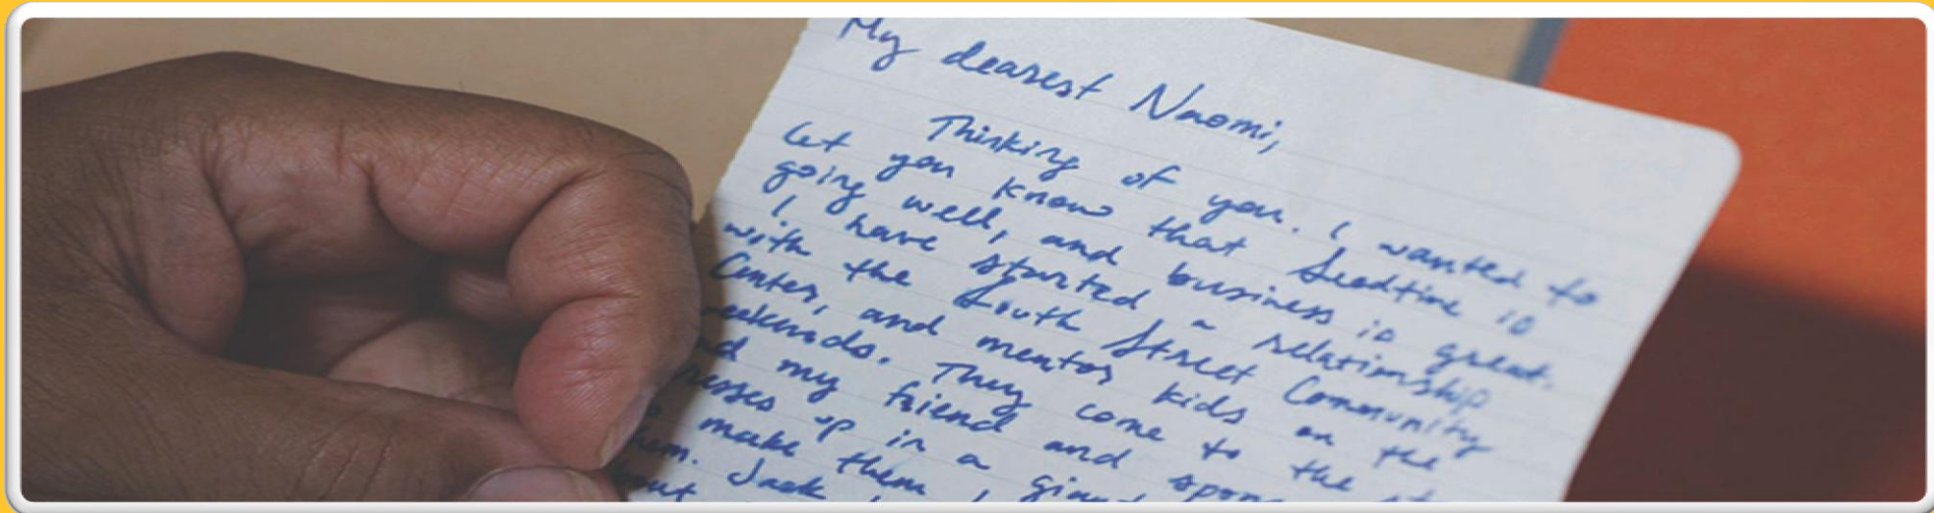 My dearest Naomi,
Thinking of you. I wanted to
let you know that Seedtime is
going well, and business is great.
I have started a relationship
with the South Street Community
Center, and mentor kids on the
weekends. They come to the
my friend and
up in a
make them
Jack